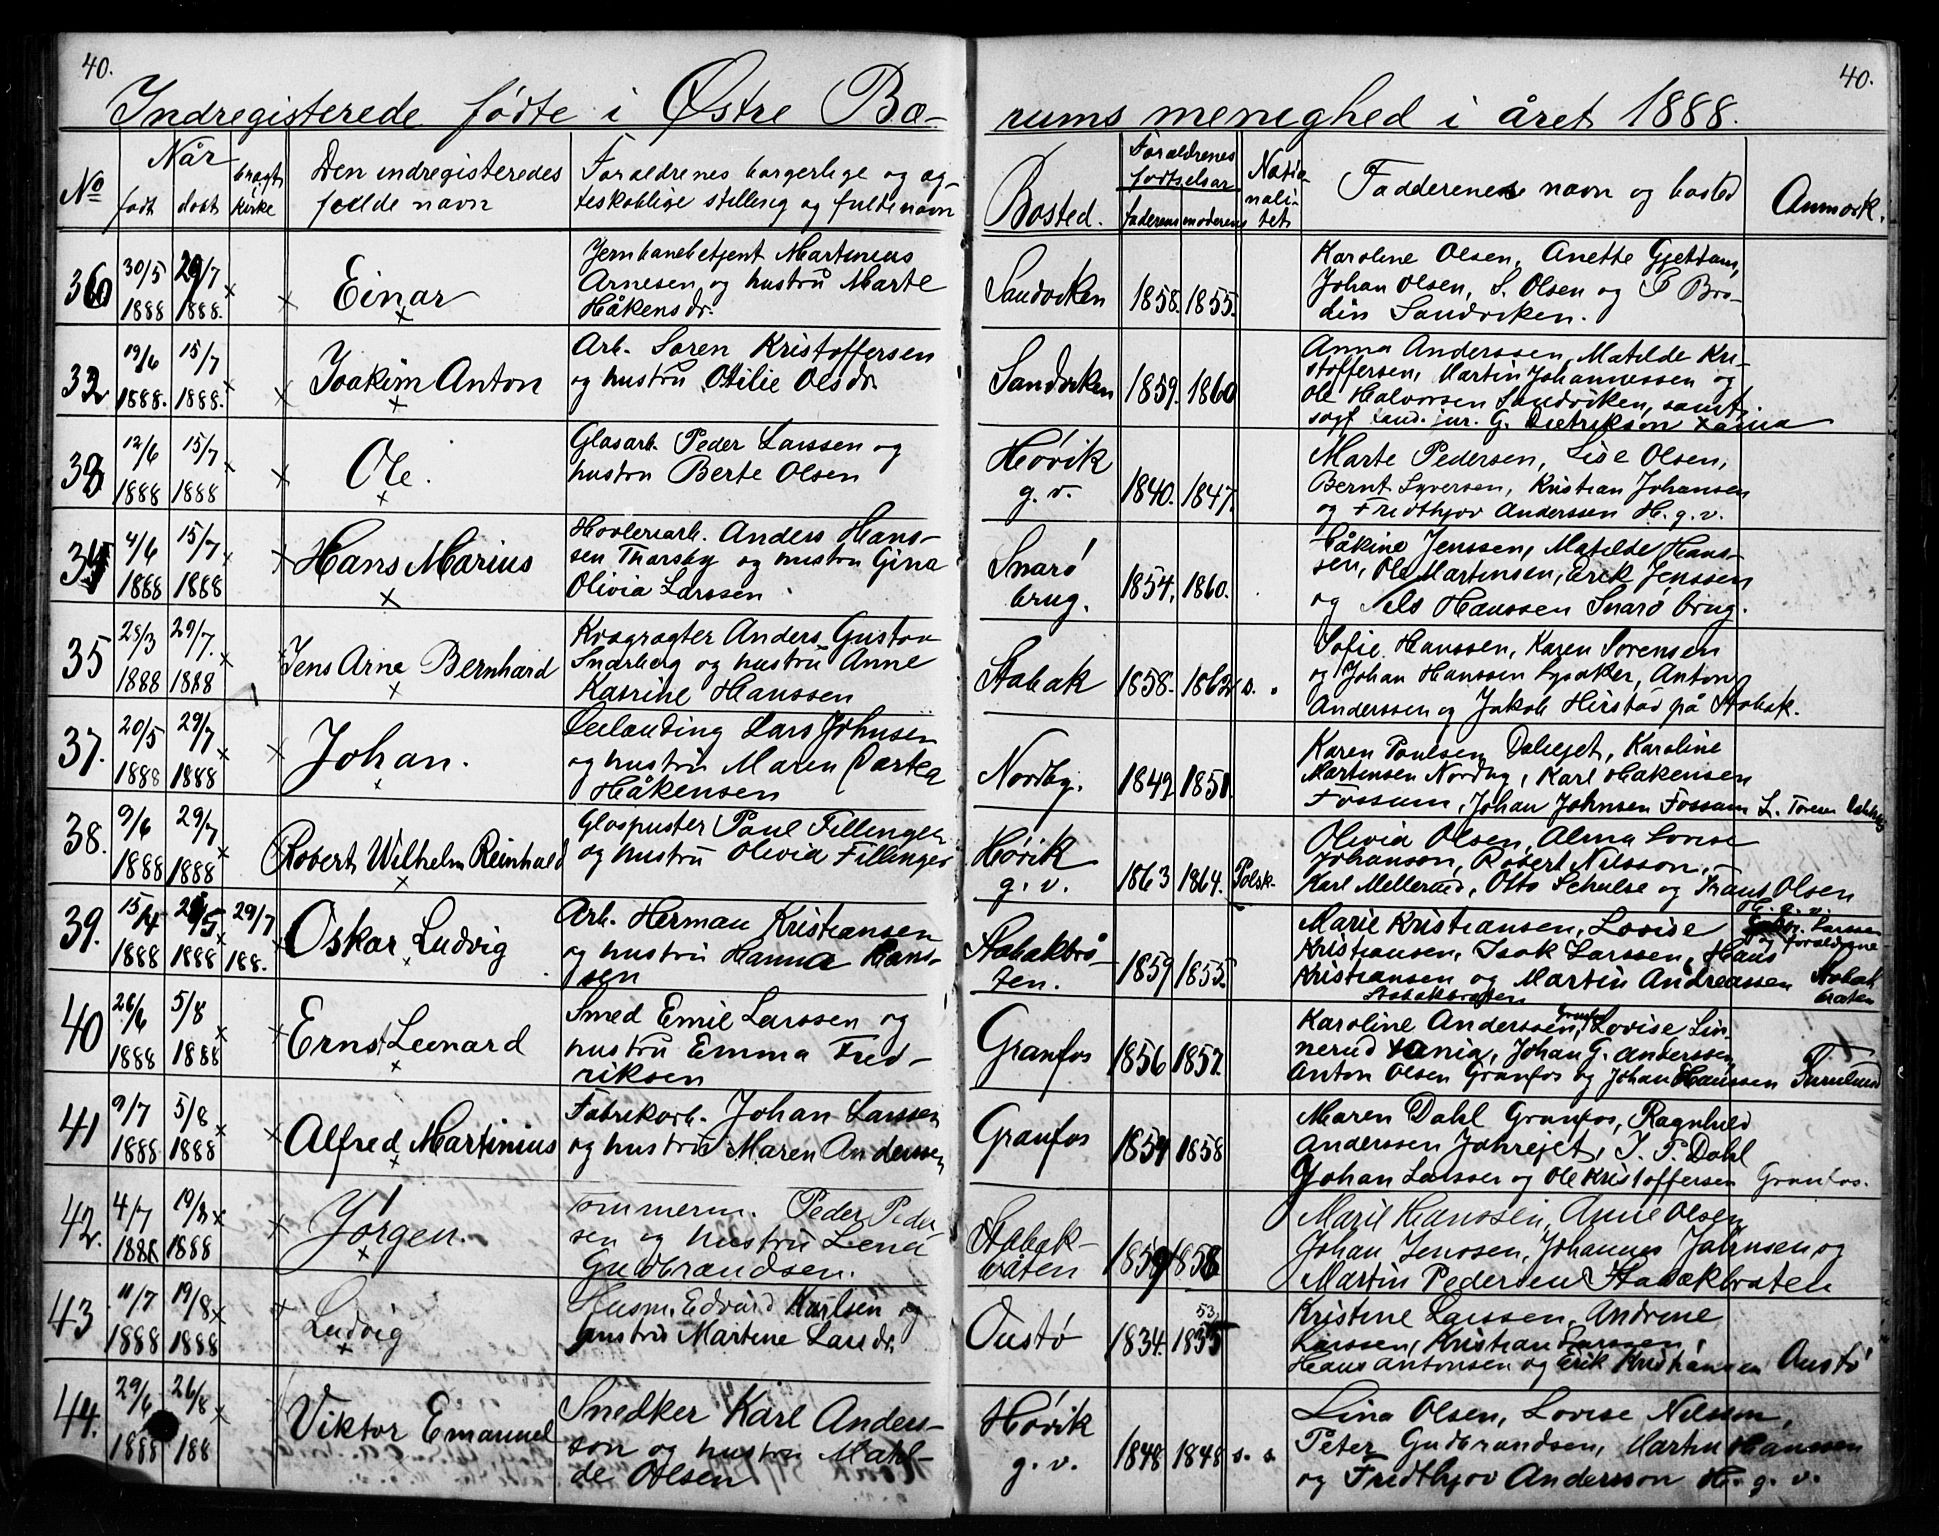 40.
40.
Indregisterede fødte i Østre Bæ-
rums menighed i året 1888.
No
Når
født
døbt
bragt i kirke
Den indregisteredes
fulde navn
Forældrenes borgerlige og æg-
teskablige stilling og fulde navn
Bosted.
Forældrenes
fødselsår
faderens
moderens
Natio-
nali-
tet
Faddernes navn og bosted
Anmærk.
36
30/5
1888
29/7
1888.
Einar
Jernbanebetjent Martinius
Arnesen og hustru Marte
Håkensdr.
Sandviken
1858.
1855.
Karoline Olsen, Anette Gjettum,
Johan Olsen, S. Olsen og P Bro-
din Sandviken.
32
19/6
1888.
15/7
1888.
Joakim Anton
Arb. Søren Kristoffersen
og hustru Otilie Olsdr.
Sandviken
1859.
1860
Anna Anderssen, Matilde Kri-
stoffersen, Martin Johannessen og
Ole Halvorsen Sandviken, samt
sogf. cand. jur. G. Dietrikson
33
12/6
1888
15/7
1888
Ole.
Glasarb. Peder Larssen og
hustru Berte Olsen
Høvik
g. v.
1840.
1847.
Marte Pedersen, Lise Olsen,
Bernt Syversen, Kristian Johansen
og Fredthjov Anderssen H. g. v.
34
4/6
1888
15/7
1888
Hans Marius
Høvleriarb. Anders Hans-
sen Thorsby og hustru Gina
Olivia Larssen
Snarø
brug.
1854.
1860.
Håkine Jenssen, Matilde Hans-
sen, Ole Martinsen, Erik Jenssen
og Nels Hanssen Snarø brug.
35
28/3
1888
29/7.
1888
Jens Arne Bernhard
Kvægrøgter Anders Gustav
Snarberg og hustru Anne
Katrine Hanssen
Stabæk
1858.
1862
s. .
Sofie Hanssen, Karen Sørensen
og Johan Hanssen Lysaker, Anton
Anderssen og Jakob Hirstad på Stabæk.
37.
20/5
1888
29/7
1888
Johan.
Leilænding Lars Johnsen
og hustru Maren Dortea
Håkensen
Nordby.
1842
1851.
Karen Paulsen Dalejet, Karoline
Martinsen Nordby, Karl Håkensen
Fossum, Johan Johnsen Fossum L. Toresen
38.
9/6
1888
29/7
1888
Robert Wilhelm Reinhold
Glaspuster Paul Fillinger
og hustru Olivia Fillinger
Høvik
g. v.
1863
1864.
Polsk.
Olivia Olsen, Alma Lovise
Johanson, Robert Nilsson,
Karl Mellerud, Otto Schulse og Frans Olsen
H. g. v.
39.
15/4
1888
29/5
1888
29/7
188.
Oskar Ludvig
Arb. Herman Kristiansen
og hustru Hanna Hans-
sen
Stabækbrå-
ten.
1859
1855.
Marie Kristiansen, Lovise Larssen
Kristiansen, Isak Larssen, Hans og forældrene
Kristiansen og Martin Andreassen Stabæk
bråten
Stabækbråten
40
26/6
1888
5/8
1888
Ernst Leonard
Smed Emil Larssen og
hustru Emma Fred-
riksen
Granfos
1856
1857.
Karoline Anderssen, Granfos Lovise Lin-
nerud, Johan G. Anderssen,
Anton Olsen Granfos og Johan Hanssen Furulund
41
9/7
1888
5/8
1888
Alfred Martinius
Fabrikarb. Johan Larssen
og hustru Maren Anderssen
Granfos
1854
1858
Maren Dahl Granfos, Ragnhild
Anderssen Jarrejet, I. P. Dahl
Johan Larssen og Ole Kristoffersen Granfos.
42.
4/7
1888
19/8
1888
Jørgen.
Tømmerm. Peder Peder-
sen og hustru Lena
Gudbrandsen.
Stabæk-
bråten
1859
1858
Marie Hanssen, Anne Olsen
Johan Jenssen, Johannes Johnsen og
Martin Pedersen Stabækbråten
43
11/7
1888
19/8
1888
Ludvig
Husm. Edvard Karlsen og
hustru Martine Larsdr.
Oustø
1834.
53.
1835
Kristine Larssen, Andrine
Larssen, Kristian Larssen,
Hans Antonsen og Erik Kristiansen Oustø
44.
29/6
1888
26/8
188
Viktor Emanuel
Snedker Karl Anders-
son og hustru Matil-
de Olsen
Høvik
g. v.
1848
1848
s. s.
Lina Olsen, Lovise Nilsson,
Peter Gudbrandsen, Martin Hanssen
og Fredthjov Andersson H. g. v.